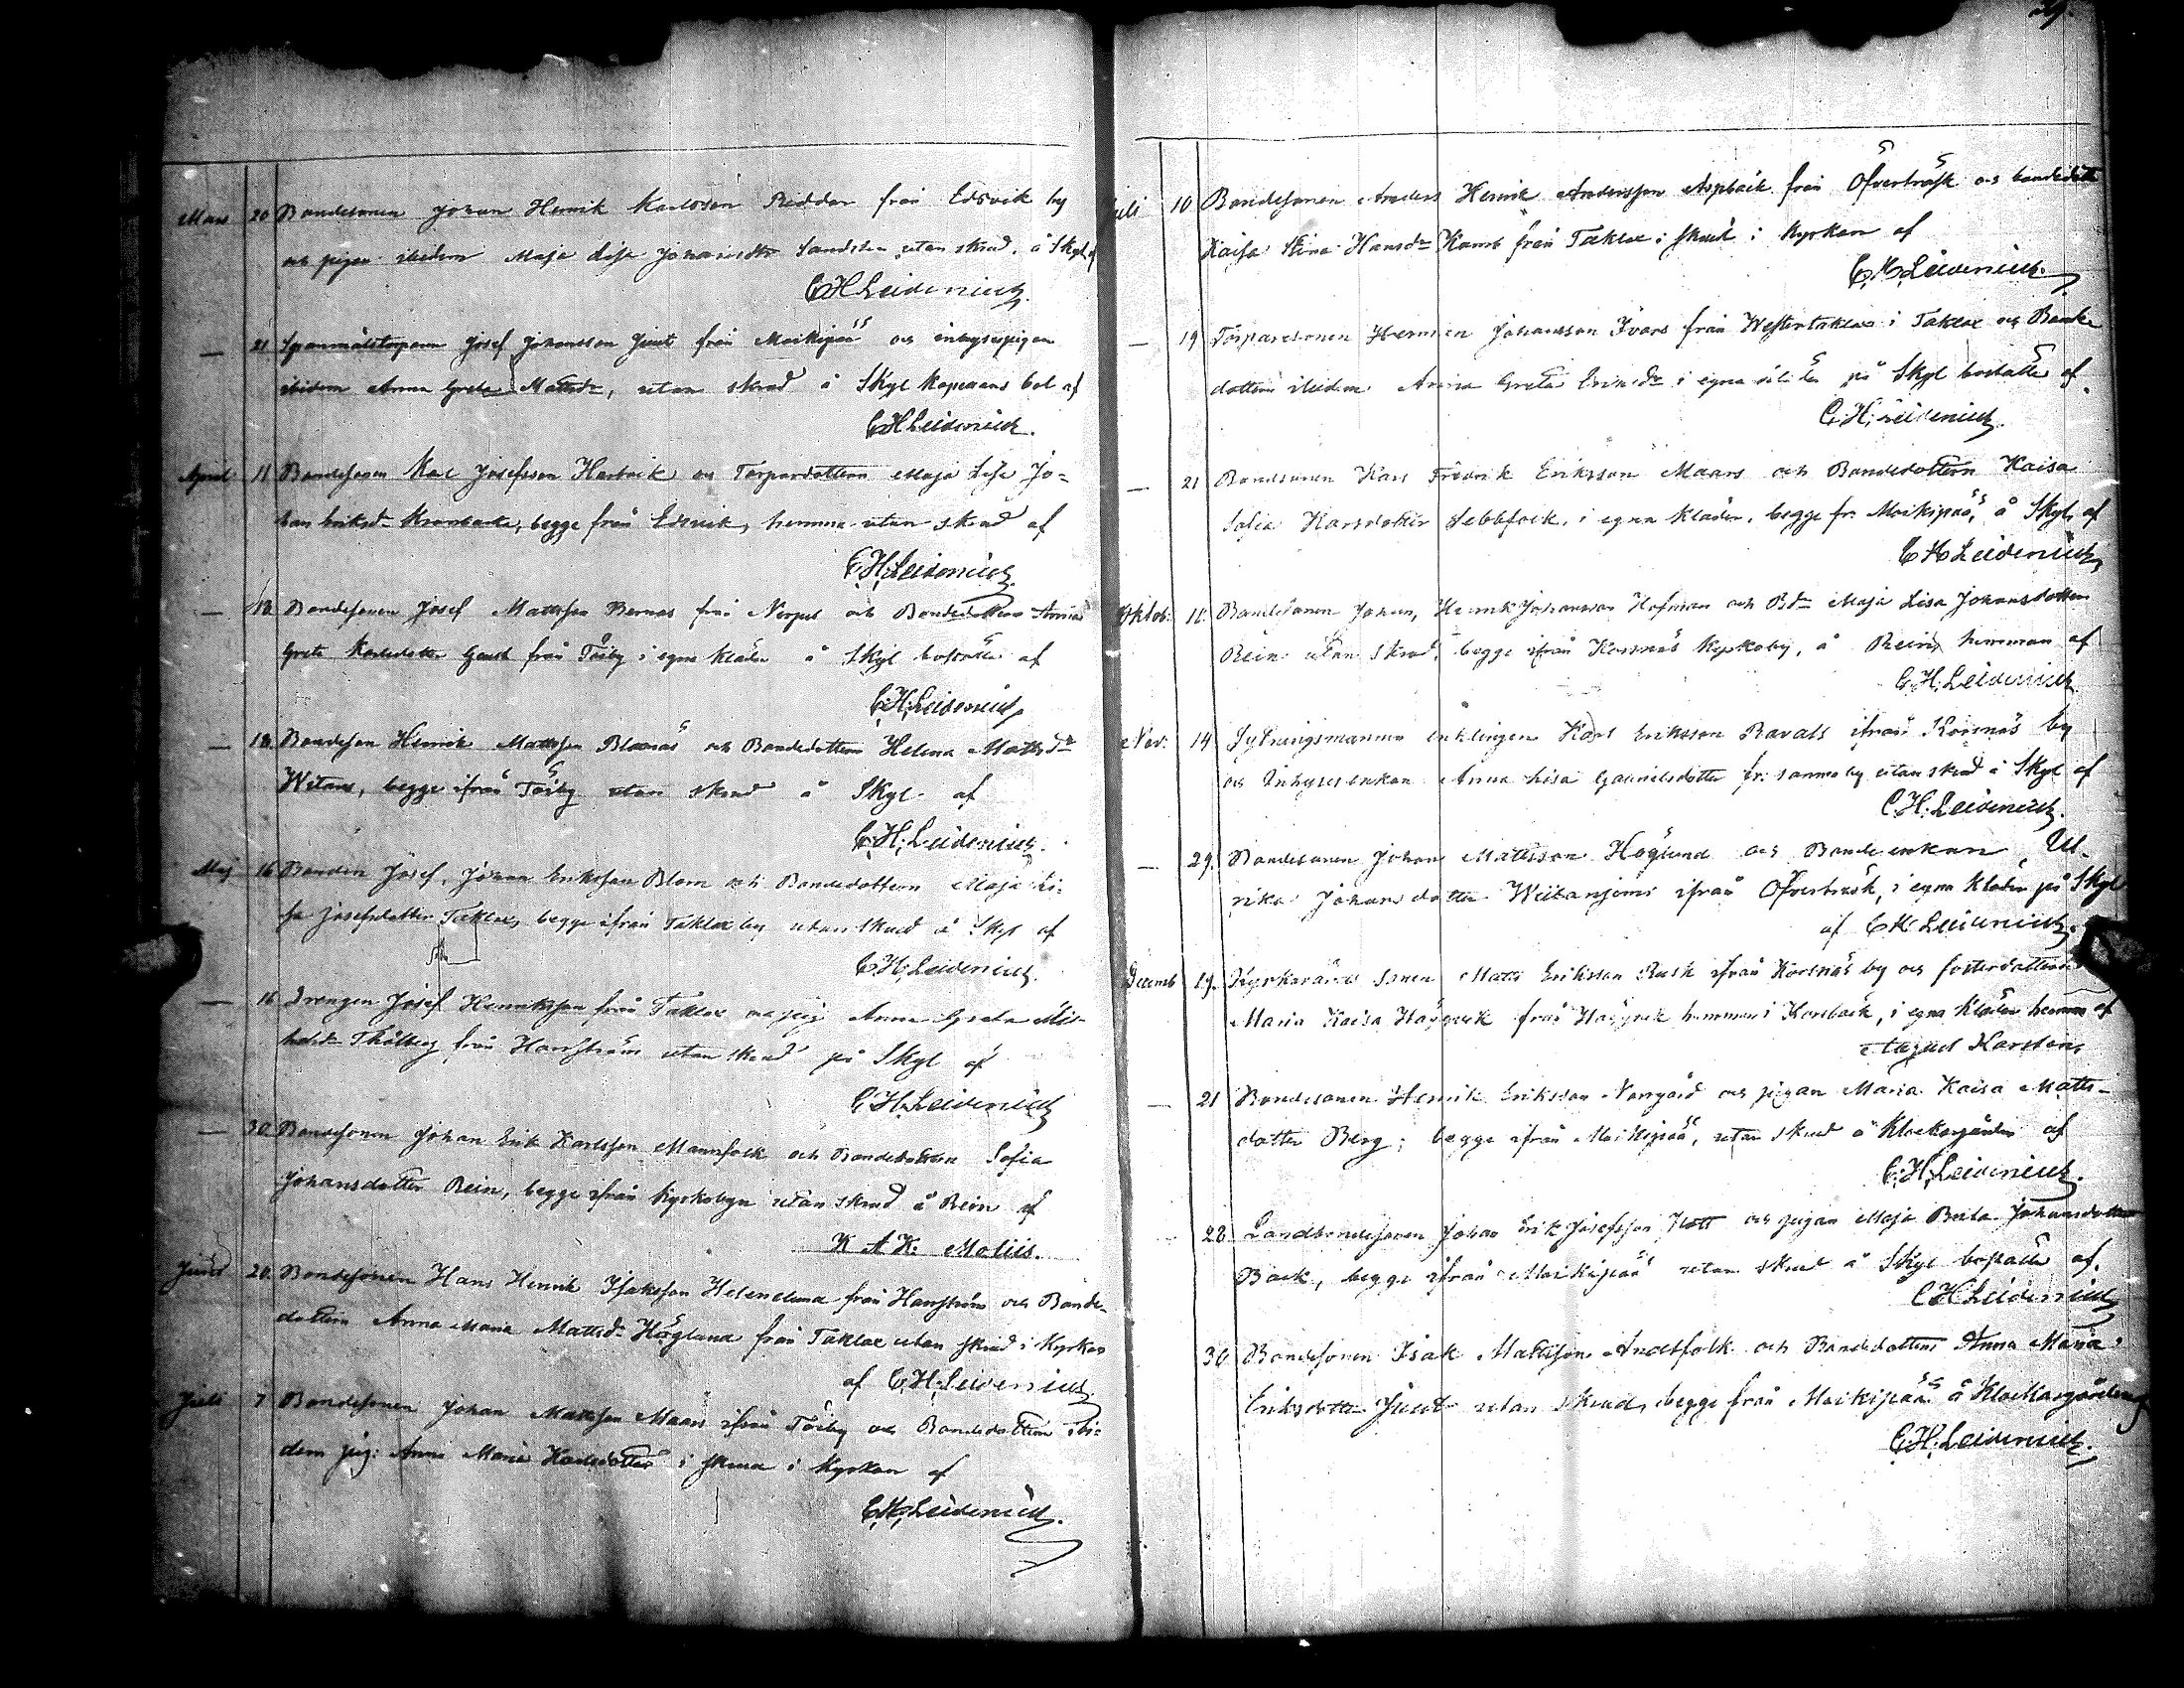 Mars 20 Bondesonen Johan Henrik Karlsson Riddar från Edsvik by
och pigan ibidem Maja Lisa Johansdtr Sandsten utan skrud å Skyl af
C H Leidenius.
— 21 Spanmålstorparen Josef Johansson Juut från Moikipää och inhysespigan
ibidem Anna Greta Mattsdr, utan skrud å Skyl Kapellans bol af
C H Leidenius.
April 11 Bondesonen Karl Josefsson Hartvik och Torpardottern Maja Lisa Jo=
han Eriksdr, begge från Edsvik, hemma utan skrud af
C. H. Leidenius.
— 12. Bondesonen Josef Mattsson Bernas från Nerpes och Bondedottern Anna
Greta Karlsdotter från Töjby i egna kläder å Skyl boställe af
C. H. Leidenius
— 18. Bondeson Henrik Mattsson Blomäs och Bondedottern Helena Mattsdr
Witans, begge ifrån Töjby utan skrud å Skyl af
C. H. Leidenius.
Maj 16 Bonden Josef Johan Eriksson Blom och Bondedottern Maja Li=
sa Josefsdotter Taklax, begge ifrån Taklax by utan skrud å Skyl af
C. H. Leidenius.
— 16 Drengen Josef Henriksson från Taklax och pig. Anna Greta Mik-
helsdr Thålberg från Harrström utan skrud på Skyl af
C. H. Leidenius
— 30 Bondesonen Johan Erik Karlsson Mannfolk och Bondedottern Sofia
Johansdotter Rein, begge ifrån Kyrkobyn utan skrud å Rein af
K A K. Moliis.
Juni 20. Bondesonen Hans Henrik Isaksson Helenelund från Harrström och Bonde-
dottern Anna Maria Mattsdr Höglund från Taklax utan skrud i Kyrkan
af C. H. Leidenius.
Juli 7 Bondesonen Johan Mattsson Maars ifrån Töjby och Bondedottern ibi=
dem pig. Anna Maria Karlsdotter i skrud i Kyrkan af
C. H. Leidenius.
Juli 10 Bondesonen Anders Henrik Andersson Aspbäck från Öfverträsk och bondedott
Kaisa Stina Hansdr Kamb från Taklax i skrud i Kyrkan af
C. H. Leidenius.
— 19 Torparesonen Herman Johansson Ivars från Westertaklax i Taklax och Bonde
dottern ibidem Anna Greta Eriksdr i egna kläder på Skyl boställe af
C. H. Leidenius.
— 21 Bondsonen Karl Fredrik Eriksson Maars och Bondedottern Kaisa
Sofia Karsdotter Sebbfolk, i egna kläder, begge fr. Moikipää, å Skyl af
C H Leidenius
Oktob. 10. Bondesonen Johan Henrik Johansson Hofman och Bdr Maja Lisa Johansdotter
Rein utan skrud, begge ifrån Korsnäs Kyrkoby, å Reins hemman af
C. H. Leidenius
Nov. 14 Sytningsmannen enklingen Karl Eriksson Ravals ifrån Korsnäs by
och Inhyses enkan Anna Lisa Gabrielsdotter fr. samma by utan skrud å Skyl af
C. H. Leidenius.
— 29. Bondesonen Johan Mattsson Höglund och Bonde enkan Ul-
rika Johansdotter ifrån Öfverträsk, i egna kläder på Skyl
af C H Leidenius.
Decemb 19. Kyrkovärds sonen Matts Eriksson Rusk ifrån Korsnäs by och fosterdottern
Maria Kaisa från hemman i Korsbäck, i egna kläder hemma af
August Karsten
— 21 Bondesonen Henrik Eriksson Norrgård och pigan Maria Kaisa Matts-
dotter Berg, begge ifrån Moikipää, utan skrud å Klockargården af
C. H. Leidenius.
— 28 Landbondesonen Johan Erik Josefsson Nott och pigan Maja Brita Johansdotter
Back, begge ifrån Moikipää utan skrud å Skyl boställe af.
C H Leidenius
30 Bondesonen Isak Mattsson Anckfolk och Bondedottern Anna Maria
Eriksdotter Juut utan skrud, begge från Moikipää å Klockargården af
C. H. Leidenius.